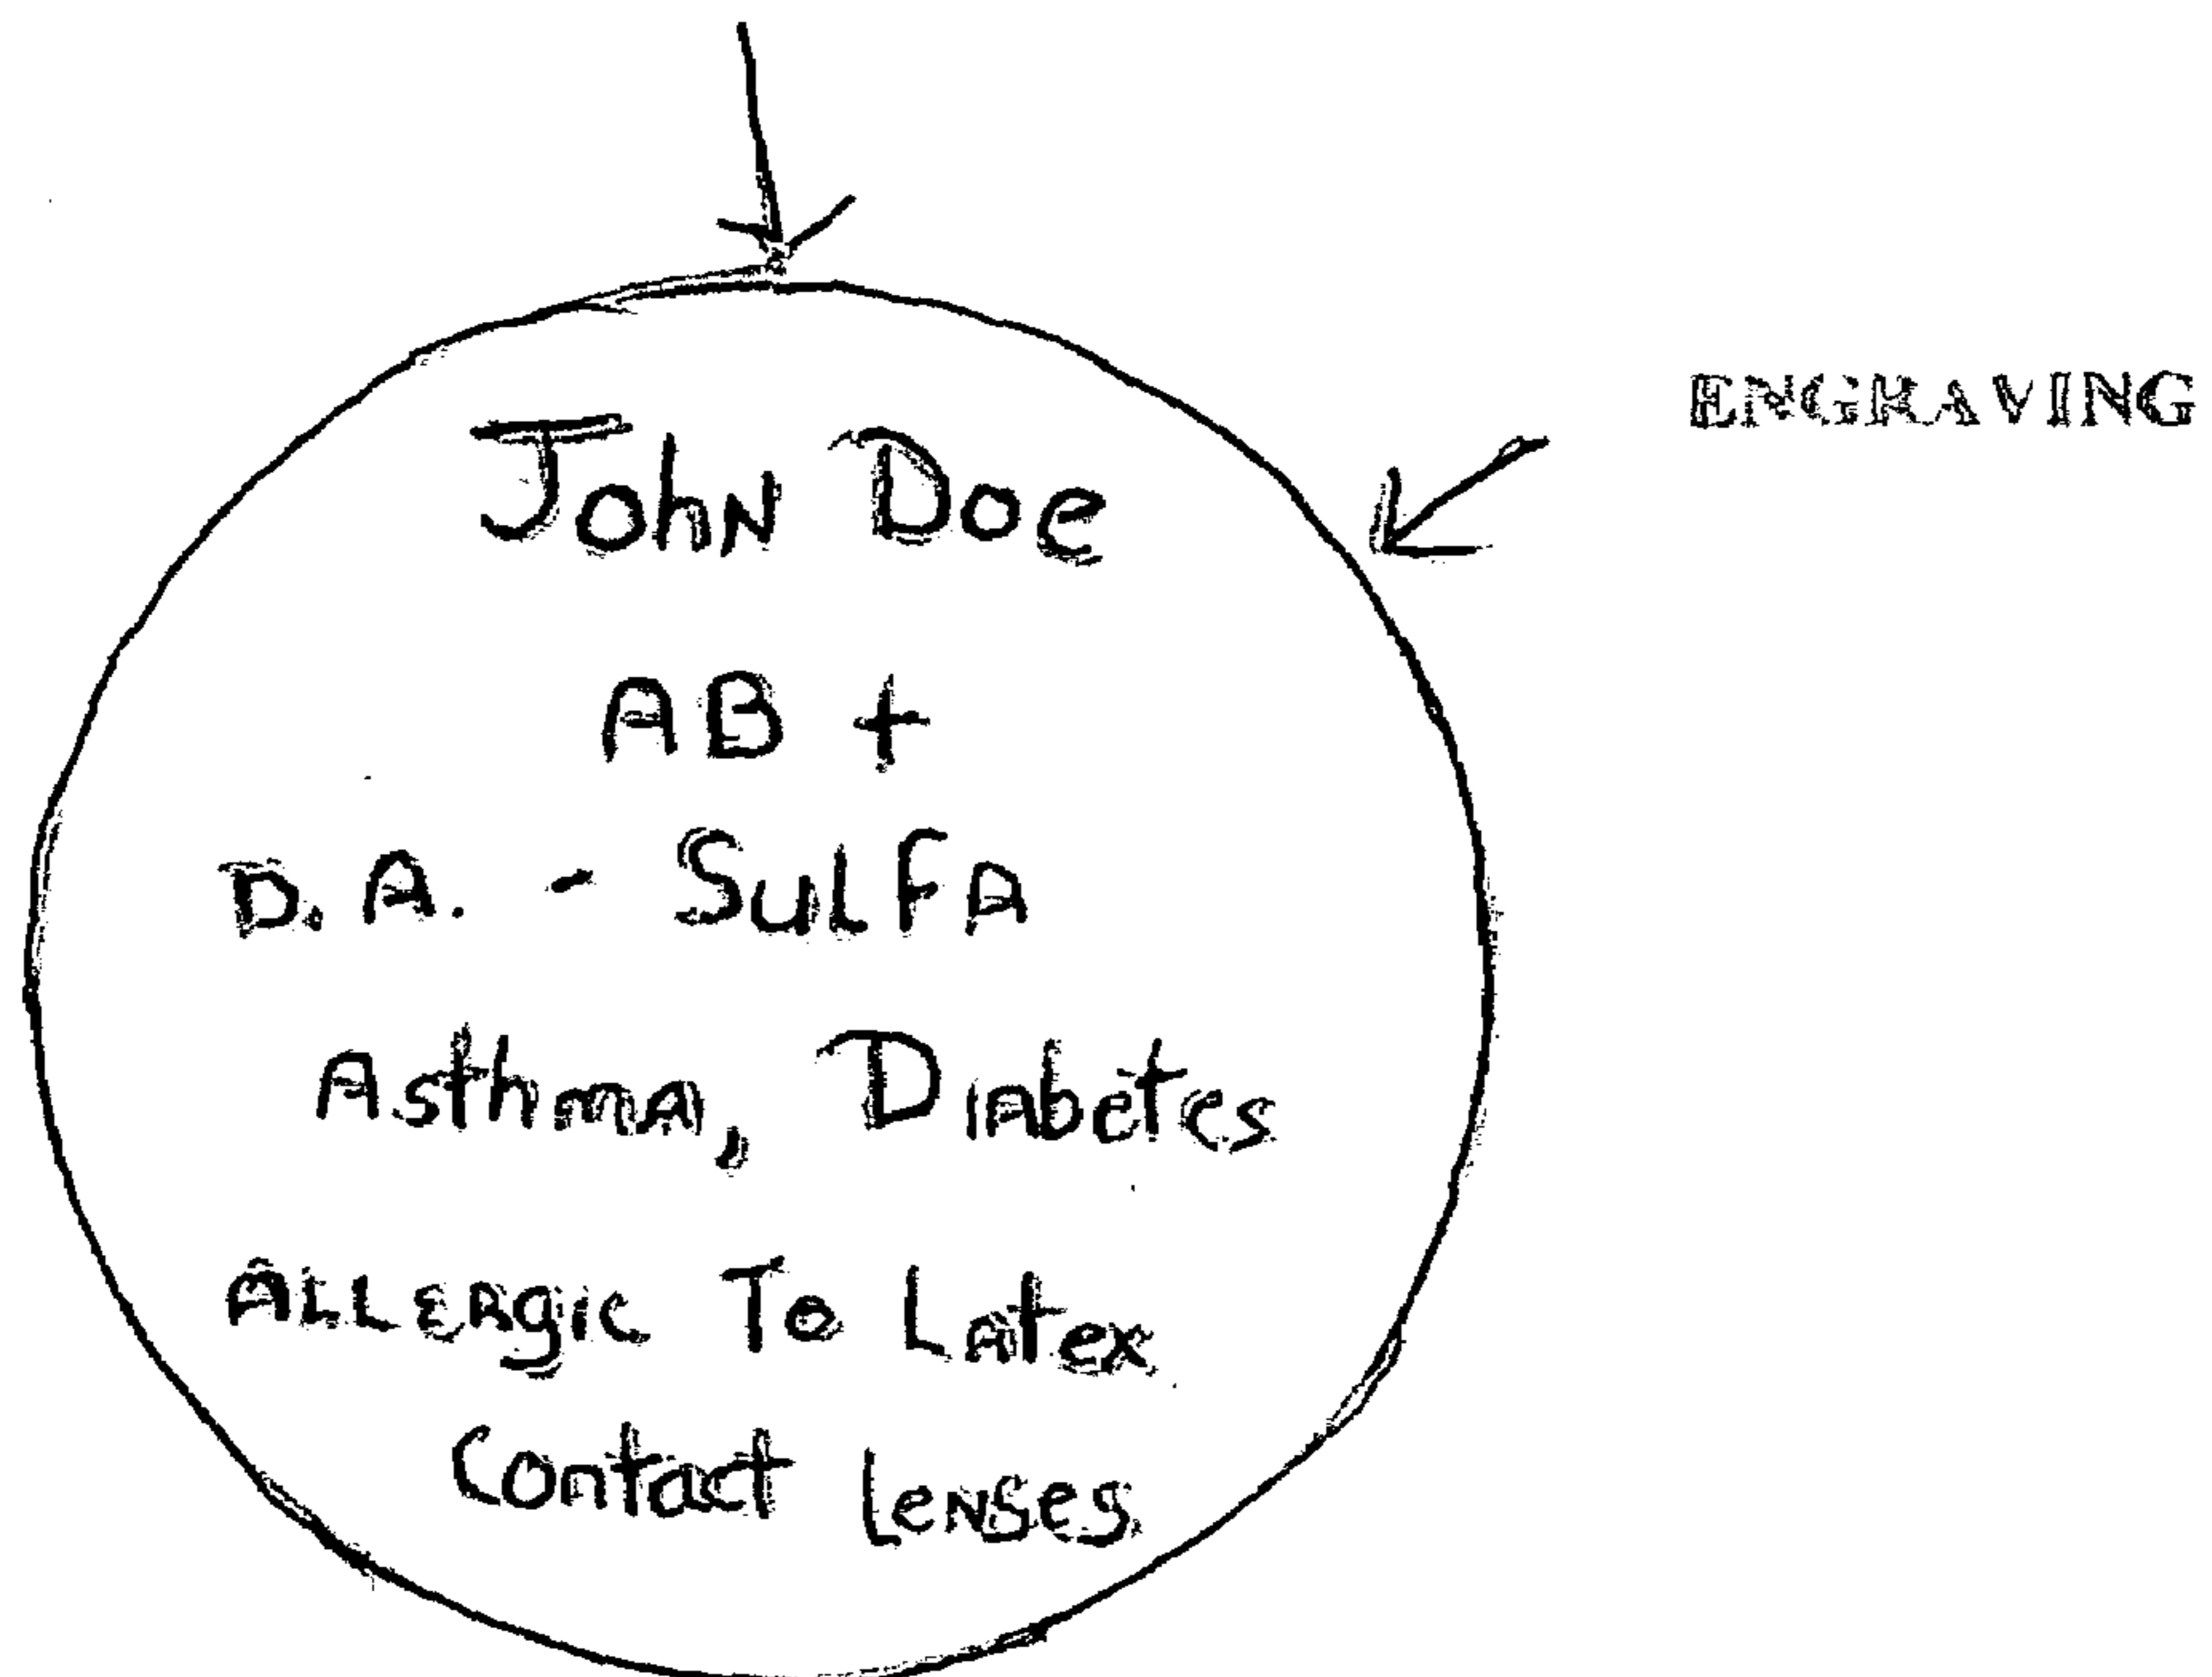 ENGRAVING
John Doe
AB +
D.A. - Sulfa
Asthma, Diabetes
Allergic To Latex
Contact Lenses